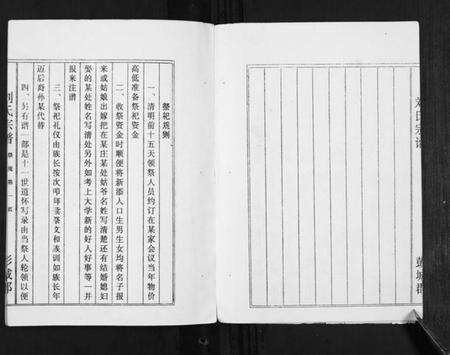 祭祀规则
一、清明前十五天领祭人员约订在某家会议当年物价
高低准备祭祀资金
二、收祭资金时顺便将新添人口生男生女均将名子报
来或姑娘出嫁把在某处姑爷名姓写清楚还有结婚媳妇
娶的某处姓名写清处另外如考上大学新的好人好事等一并
报来注谱
三、祭祀礼仪由族长按次叩拜读祭文和族训如族长年
迈后裔孙某代替
四、另有谱一部是十一世道怀写录由当祭人轮领以便
刘氏宗谱
彭城郡
刘氏宗谱
彭城郡